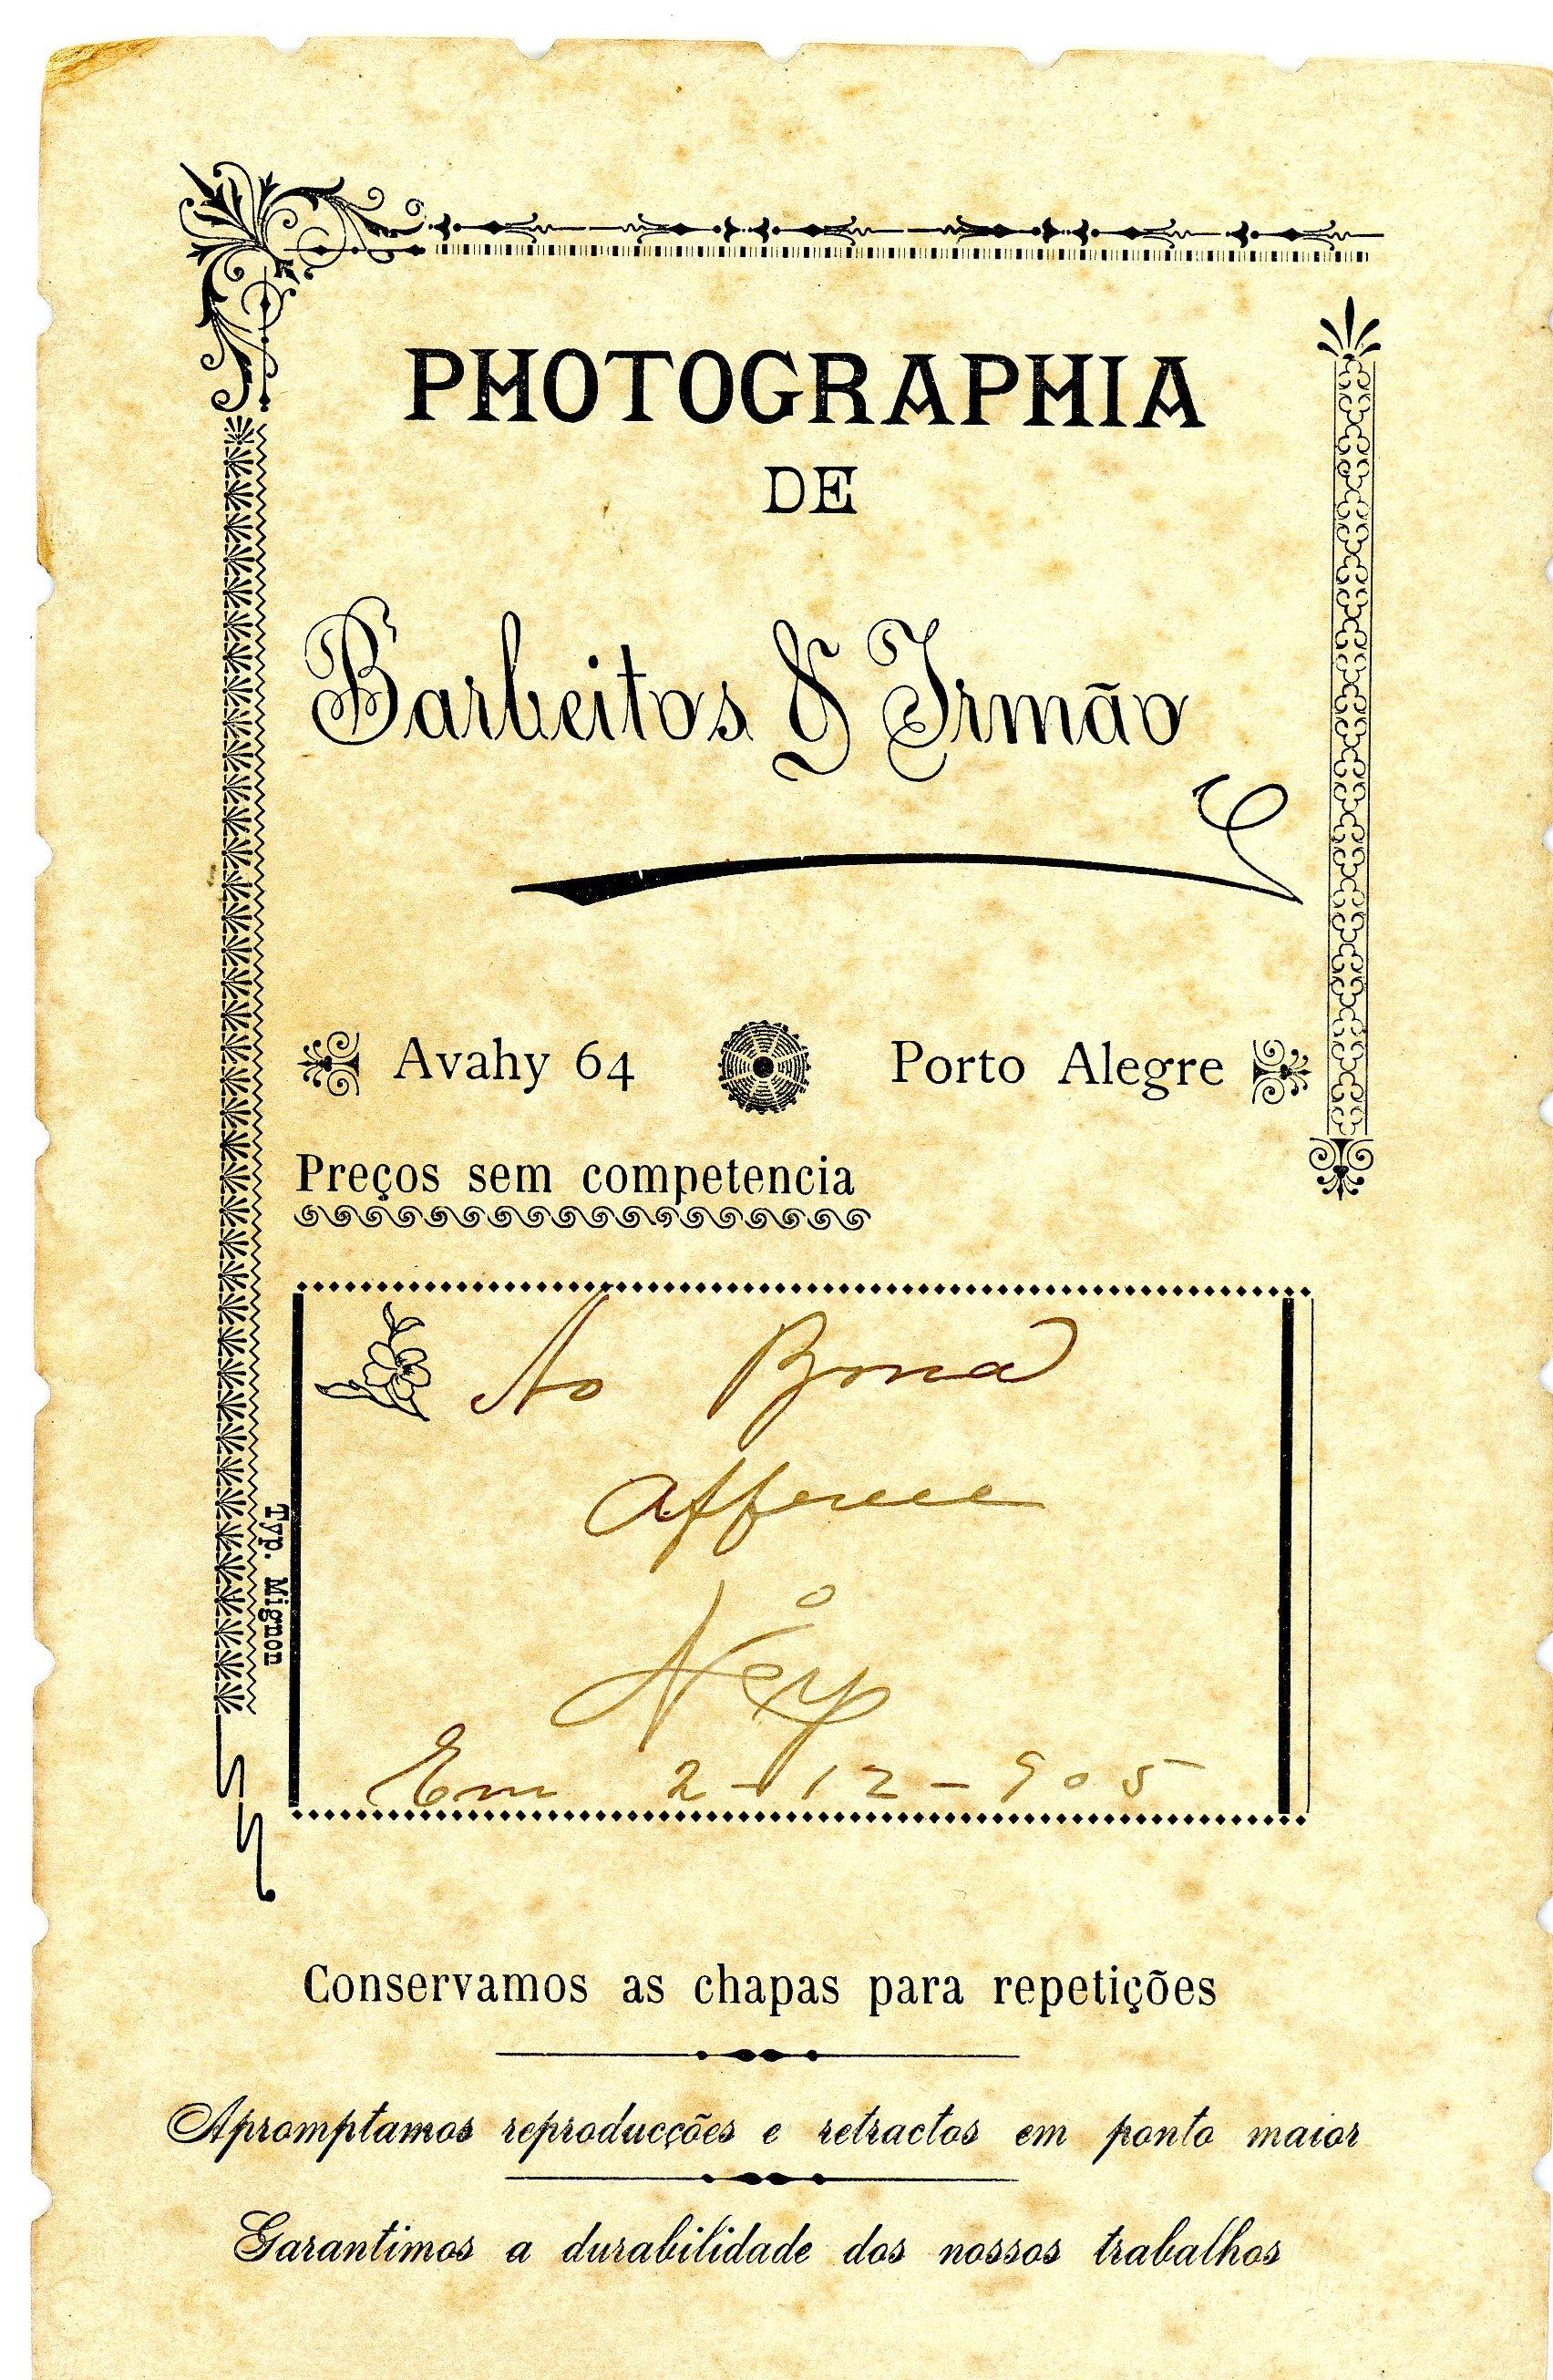 PHOTOGRAPHIA
DE
Barbeitos & Irmão
Avahy 64 Porto Alegre
Preços sem competencia
Ao Bona
Offerece
Ney
Em 2-12-905
Typ. Mignon
Conservamos as chapas para repetições
Apromptamos reproducções e retractos em ponto maior
Garantimos a durabilidade dos nossos trabalhos